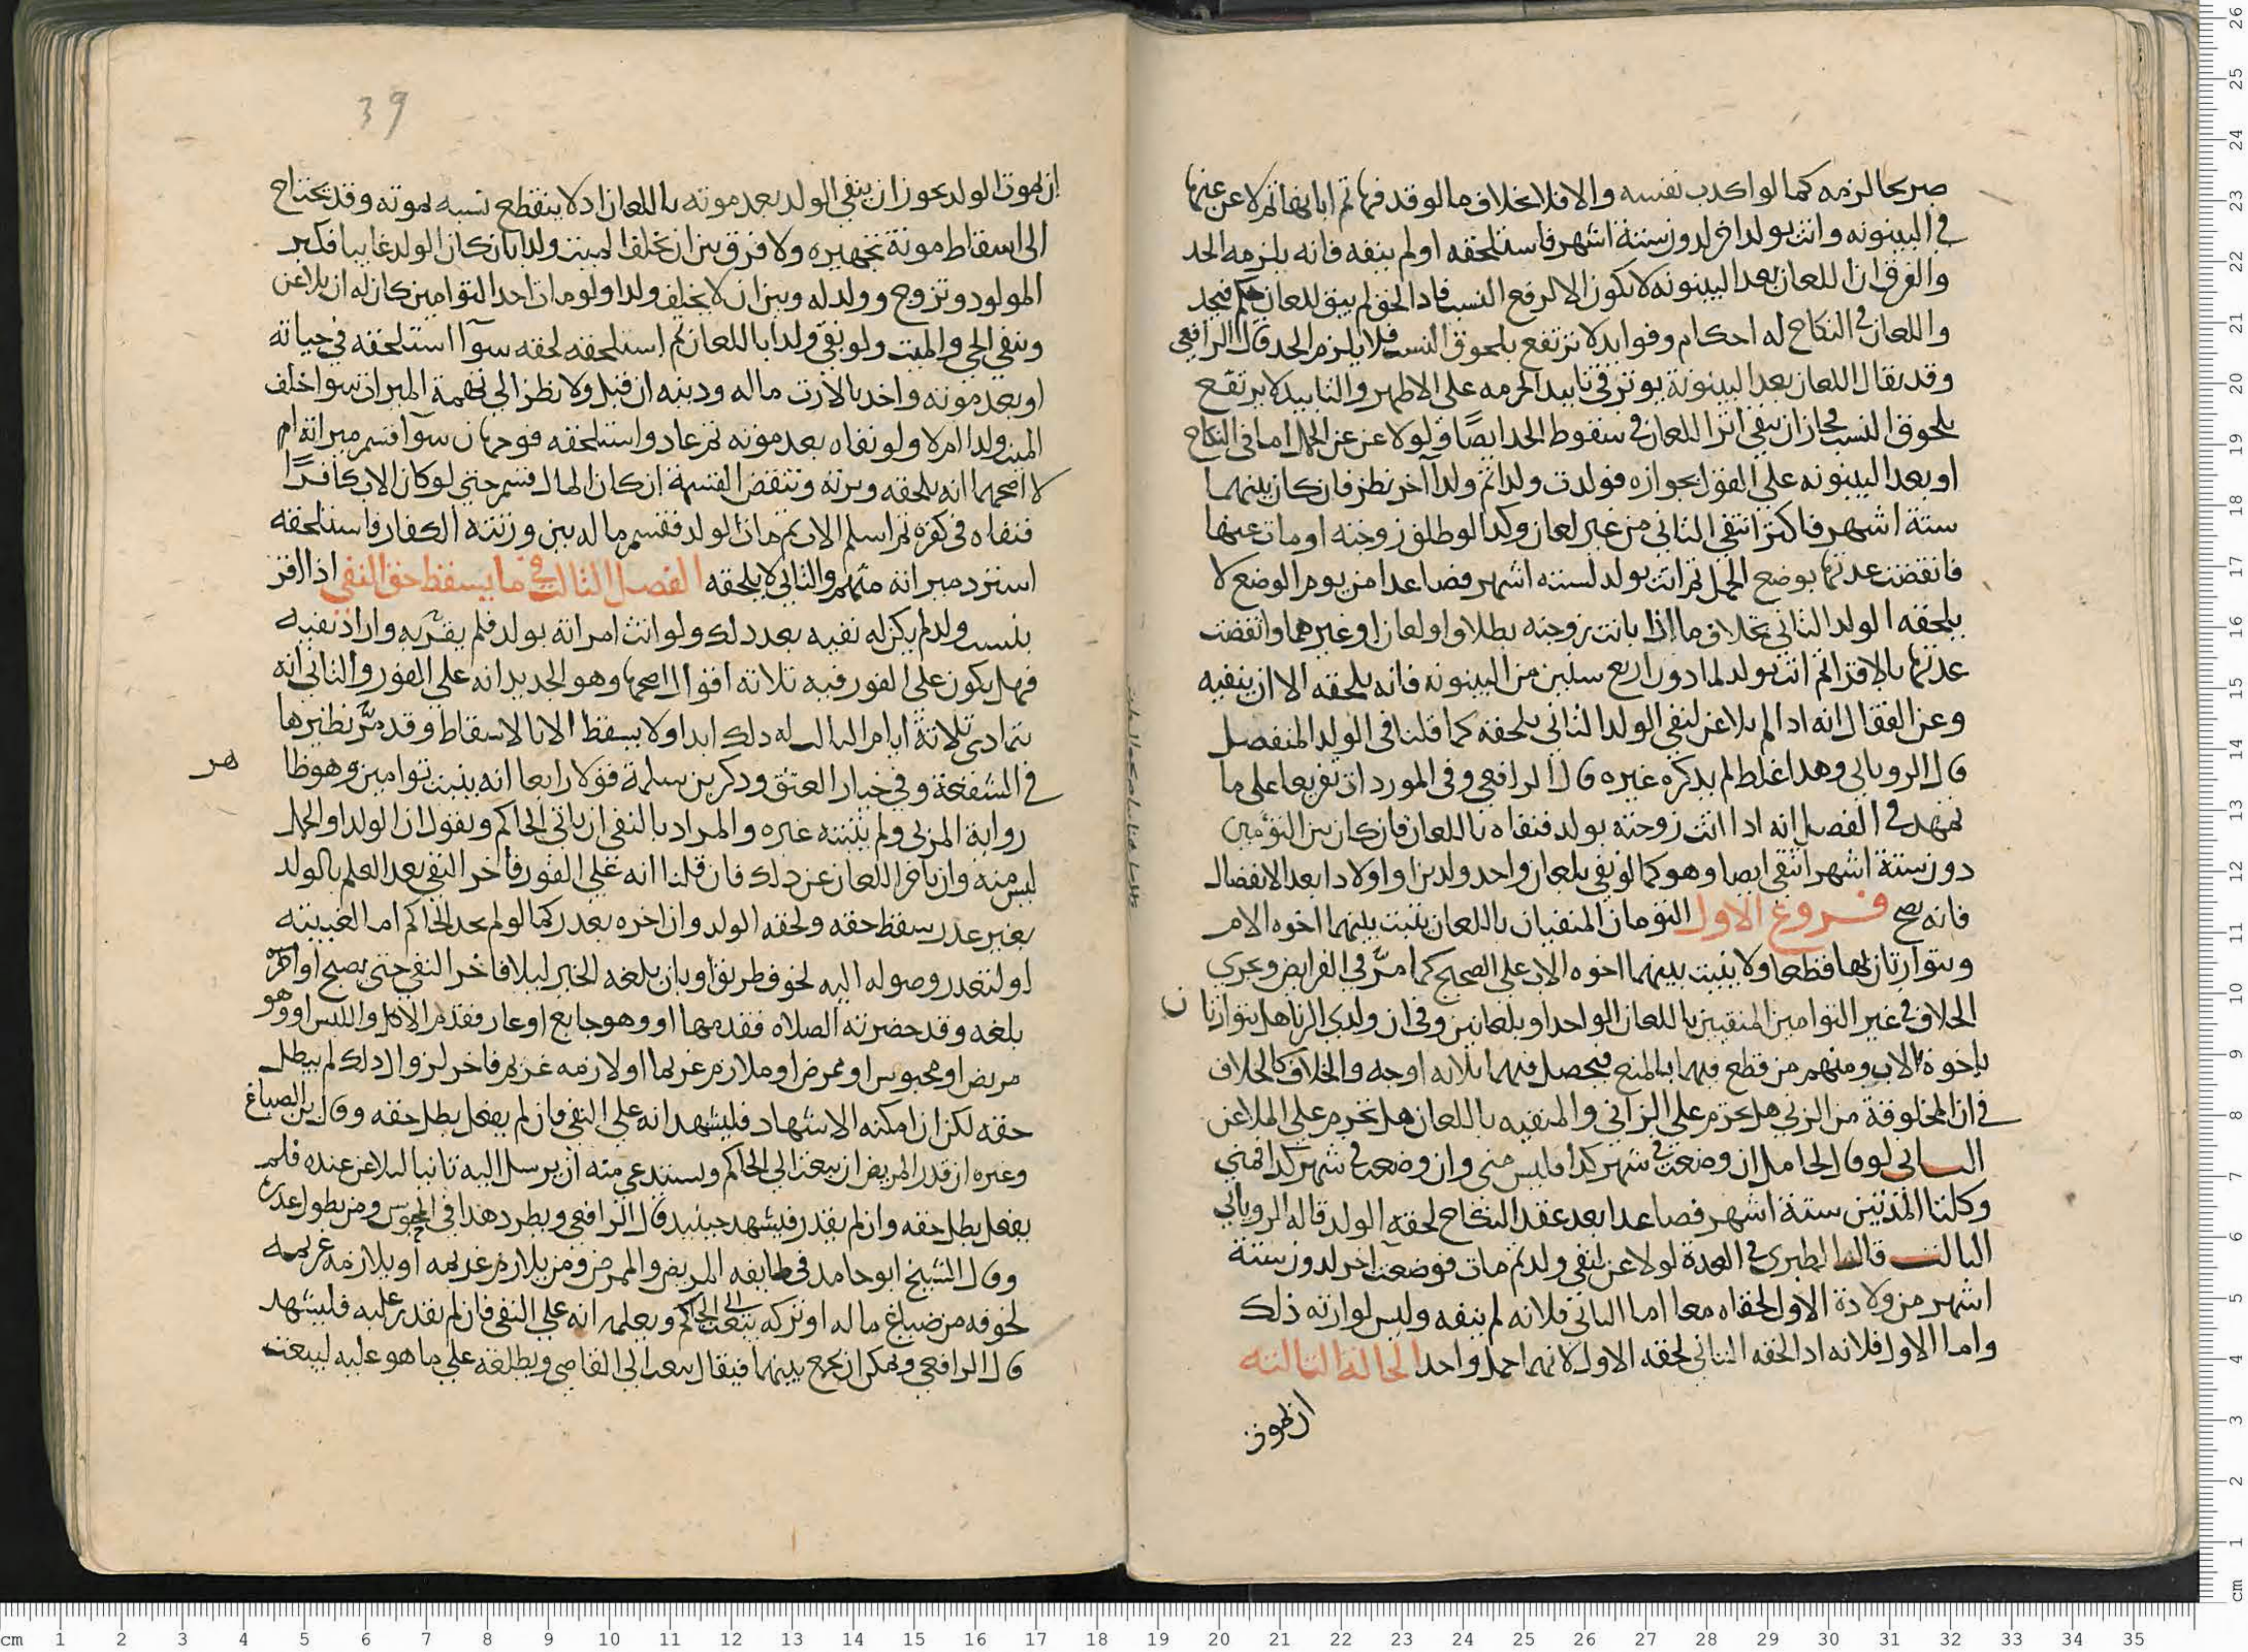 صريحا لزمه كما لو اكذب نفسه والا فلا بخلاف ما لو قذفها ثم ابانها ثم لاعن عنها
في البينونه واتت بولد اخر لدون ستة اشهر فاستلحقه او لم ينفه فانه يلزمه الحد
والفرق ان اللعان بعد البينونه لا يكون الا لرفع النسب فاذا لحق لم يبق للعان حكم فيحد
واللعان في النكاح له احكام وفوايد لا ترتفع بلحوق النسب فلا يلزم الحد قال الرافعي
وقد يقال اللعان بعد البينونة يوثر في تابيد الحرمه على الاظهر والتابيد لا يرتفع
بلحوق النسب فجاز ان يبقى اثر اللعان في سقوط الحد ايضًا ولو لاعن عن الحمل اما في النكاح
او بعد البينونه على القول بجوازه فولدت ولدا ثم ولدا آخر نظر فان كان بينهما
ستة اشهر فاكثر انتفى الثاني من غير لعان وكذا لو طلق زوجته او مات عنها
فانقضت عدتها بوضع الحمل ثم اتت بولد لسته اشهر فصاعدا من يوم الوضع لا
يلحقه الولد الثاني بخلاف ما اذا بانت زوجته بطلاق او لعان او غيرهما وانقضت
عدتها بالاقرا ثم اتت بولد لما دون اربع سنين من البينونه فانه يلحقه الا ان ينفيه
وعن القفال انه اذا لم يلاعن لنفي الولد الثاني يلحقه كما قلنا في الولد المنفصل
قال الروياني وهذا غلط لم يذكره غيره قال الرافعي وفي المورد ان تفريعا على ما
تمهد في الفصل انه اذا اتت زوجته بولد فنفاه باللعان فان كان بين التؤمين
دون ستة اشهر انتفى ايضا وهو كما لو نفى بلعان واحد ولدين او اولادا بعد الانفصال
فانه يصح فروع الاول التؤمان المنفيان باللعان يثبت بينهما اخوه الام
ويتوارثان بها قطعا ولا يثبت بينهما اخوه الاب على الصحيح كما مرّ في الفرايض ويجري
الخلاف في غير التوامين المنفيين باللعان الواحد او بلعانين وفي ان ولدي الزنا هل يتوارثان
باخوة الاب ومنهم من قطع فيهما بالمنع فيحصل فيهما ثلاثه اوجه والخلاف كالخلاف
في ان المخلوقة من الزنى هل تحرم على الزاني والمنفيه باللعان هل تحرم على الملاعن
الثاني لو قال لحامل ان وضعت في شهر كذا فليس مني وان وضعت في شهر كذا فمني
وكلتا المدتين ستة اشهر فصاعدا بعد عقد النكاح لحقه الولد قاله الروياني
الثالث قال الطبري في العدة لو لاعن لنفي ولد ثم مات فوضعت آخر لدون ستة
اشهر من ولادة الاول لحقاه معا اما الثاني فلانه لم ينفه وليس لوارثه ذلك
واما الاول فلانه اذا لحقه الثاني لحقه الاول لانهما حمل واحد الحالة الثالثه
ان يموت
39
ان يموت الولد يجوز ان ينفي الولد بعد موته باللعان اذ لا ينقطع نسبه بموته وقد يحتاج
الى اسقاط مونة تجهيزه ولا فرق بين ان يخلف الميت ولدا بان كان الولد غايبا فكبر
المولود وتزوج وولد له وبين ان لا يخلف ولدا ولو مات احد التوامين كان له ان يلاعن
وينفي الحي والميت ولو نفى ولدا باللعان ثم استلحقه لحقه سوآ استلحقه في حياته
او بعد موته واخذ بالارث ماله وديته ان قتل ولا نظر الى تهمة الميراث سوا خلف
الميت ولدا ام لا ولو نفاه بعد موته ثم عاد واستلحقه فوجهان سوآ قسم ميراثه ام
لا اصحهما انه يلحقه ويرثه وتنقض القسمة ان كان المال قسم حتى لو كان الاب كافرًا
فنفاه في كفره ثم اسلم الاب ثم مات الولد فقسم ماله بين ورثته الكفار فاستلحقه
استرد ميراثه منهم والثاني لا يلحقه الفصل الثالث في ما يسقط حق النفي اذا اقر
بنسب ولد لم يكن له نفيه بعد ذلك ولو اتت امراته بولد فلم يقر به واراد نفيه
فهل يكون على الفور فيه ثلاثة اقوال اصحها وهو الجديد انه على الفور والثاني انه
يتمادى ثلاثة ايام الثالث له ذلك ابدا ولا يسقط الا بالاسقاط وقد مرّ نظيرها
في الشفعة وفي خيار العتق وذكر بن سلمة قولا رابعا انه يثبت توامين وهو ظا هر
رواية المزني ولم يثبته غيره والمراد بالنفي ان ياتي الحاكم ويقول ان الولد او الحمل
ليس منه وان تاخر اللعان عن ذلك فان قلنا انه على الفور فاخر النفي بعد العلم بالولد
بغير عذر سقط حقه ولحقه الولد وان اخره بعذر كما لو لم يجد الحاكم اما لغيبته
او لتعذر وصوله اليه لخوف طريق او بان بلغه الخبر ليلا فاخر النفي حتى يصبح او
بلغه وقد حضرته الصلاه فقدمها او وهو جايع او عار فقدم الاكل واللبس او وهو
مريض او محبوس او ممرض او ملازم غريما او لازمه غريم فاخر لزوال ذلك لم يبطل
حقه لكن ان امكنه الاشهاد فليشهد انه على النفي فان لم يفعل بطل حقه وقال بن الصباغ
وغيره ان قدر المريض ان يبعث الى الحاكم ويستدعي منه ان يرسل اليه نائبا ليلاعن عنده فلم
يفعل بطل حقه وان لم يقدر فيشهد حينيذ قال الرافعي ويطرد هذا في المحبوس ومن يطول عذره
وقال الشيخ ابو حامد في طايفه المريض والممرض ومن يلازم غريمه او يلازمه غريمه
لخوفه من ضياع ماله او تركه يبعث الى الحاكم ويعلمه انه على النفي فان لم يقدر عليه فليشهد
قال الرافعي ويمكن ان يجمع بينهما فيقال يبعث الى القاضي ويطلعه على ما هو عليه ليبعث